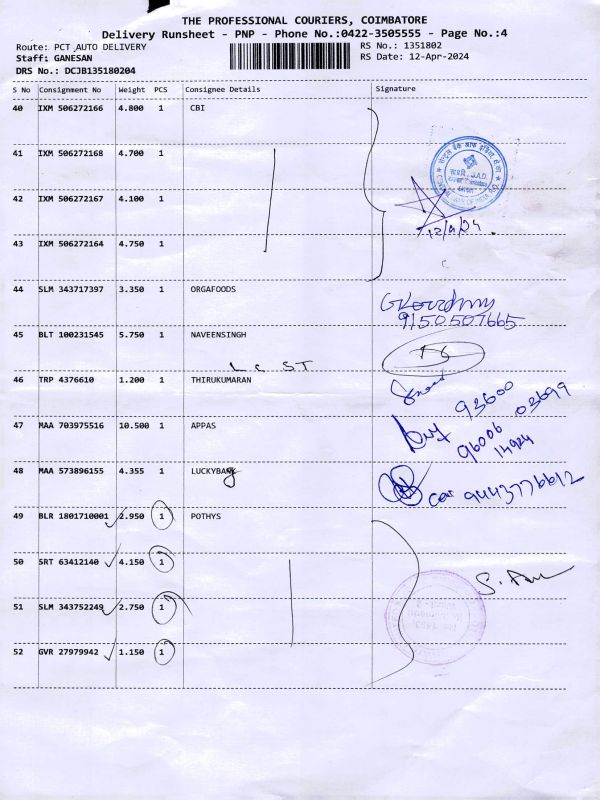 THE PROFESSIONAL COURIERS, COIMBATORE
Delivery Runsheet - PNP - Phone No.:0422-3505555 - Page No.:4
Route: PCT AUTO DELIVERY
RS No.: 1351802
Staff: GANESAN
RS Date: 12-Apr-2024
DRS No.: DCJB135180204
S No Consignment No Weight PCS Consignee Details Signature
40 IXM 506272166 4.800 1 CBI
41 IXM 506272168 4.700 1
42 IXM 506272167 4.100 1
12/4/24
43 IXM 506272164 4.750 1
44 SLM 343717397 3.350 1 ORGAFOODS
9150507665
45 BLT 100231545 5.750 1 NAVEENSINGH
L C S T
46 TRP 4376610 1.200 1 THIRUKUMARAN
93600 03699
47 MAA 703975516 10.500 1 APPAS
96006
14924
48 MAA 573896155 4.355 1 LUCKYBANG
9443776612
49 BLR 1801710001 2.950 1 POTHYS
50 SRT 63412140 4.150 1
51 SLM 343752249 2.750 1
52 GVR 27979942 1.150 1